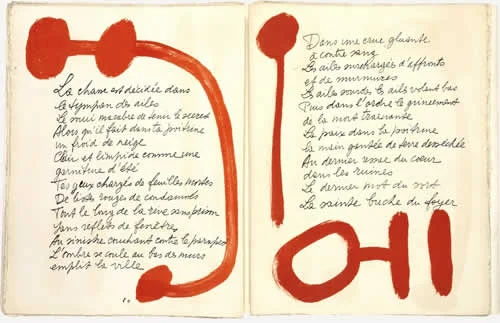 La chasse est décidée dans
le tympan des ailes
Le souci macabre de tenir le secret
Alors qu'il fait dans ta poitrine
un froid de neige
Clair et limpide comme une
garniture d'été
Tes yeux chargés de feuilles mortes
De listes rouges de condamnés
Tout le long de la
sans reflets de fenêtre
Au sinistre couchant contre le parapet
L'ombre se coule au bas des murs
emplit la ville
Dans une crue gluante
à contre sang
Les ailes d'affronts
et de murmures
Les ailes sourdes Les ailes volant bas
Puis dans l'ordre le grincement
de la mort
La paix dans la poitrine
la main gantée de terre
Au dernier du coeur
dans les ruines
Le dernier mot du sort
La sainte buche du foyer